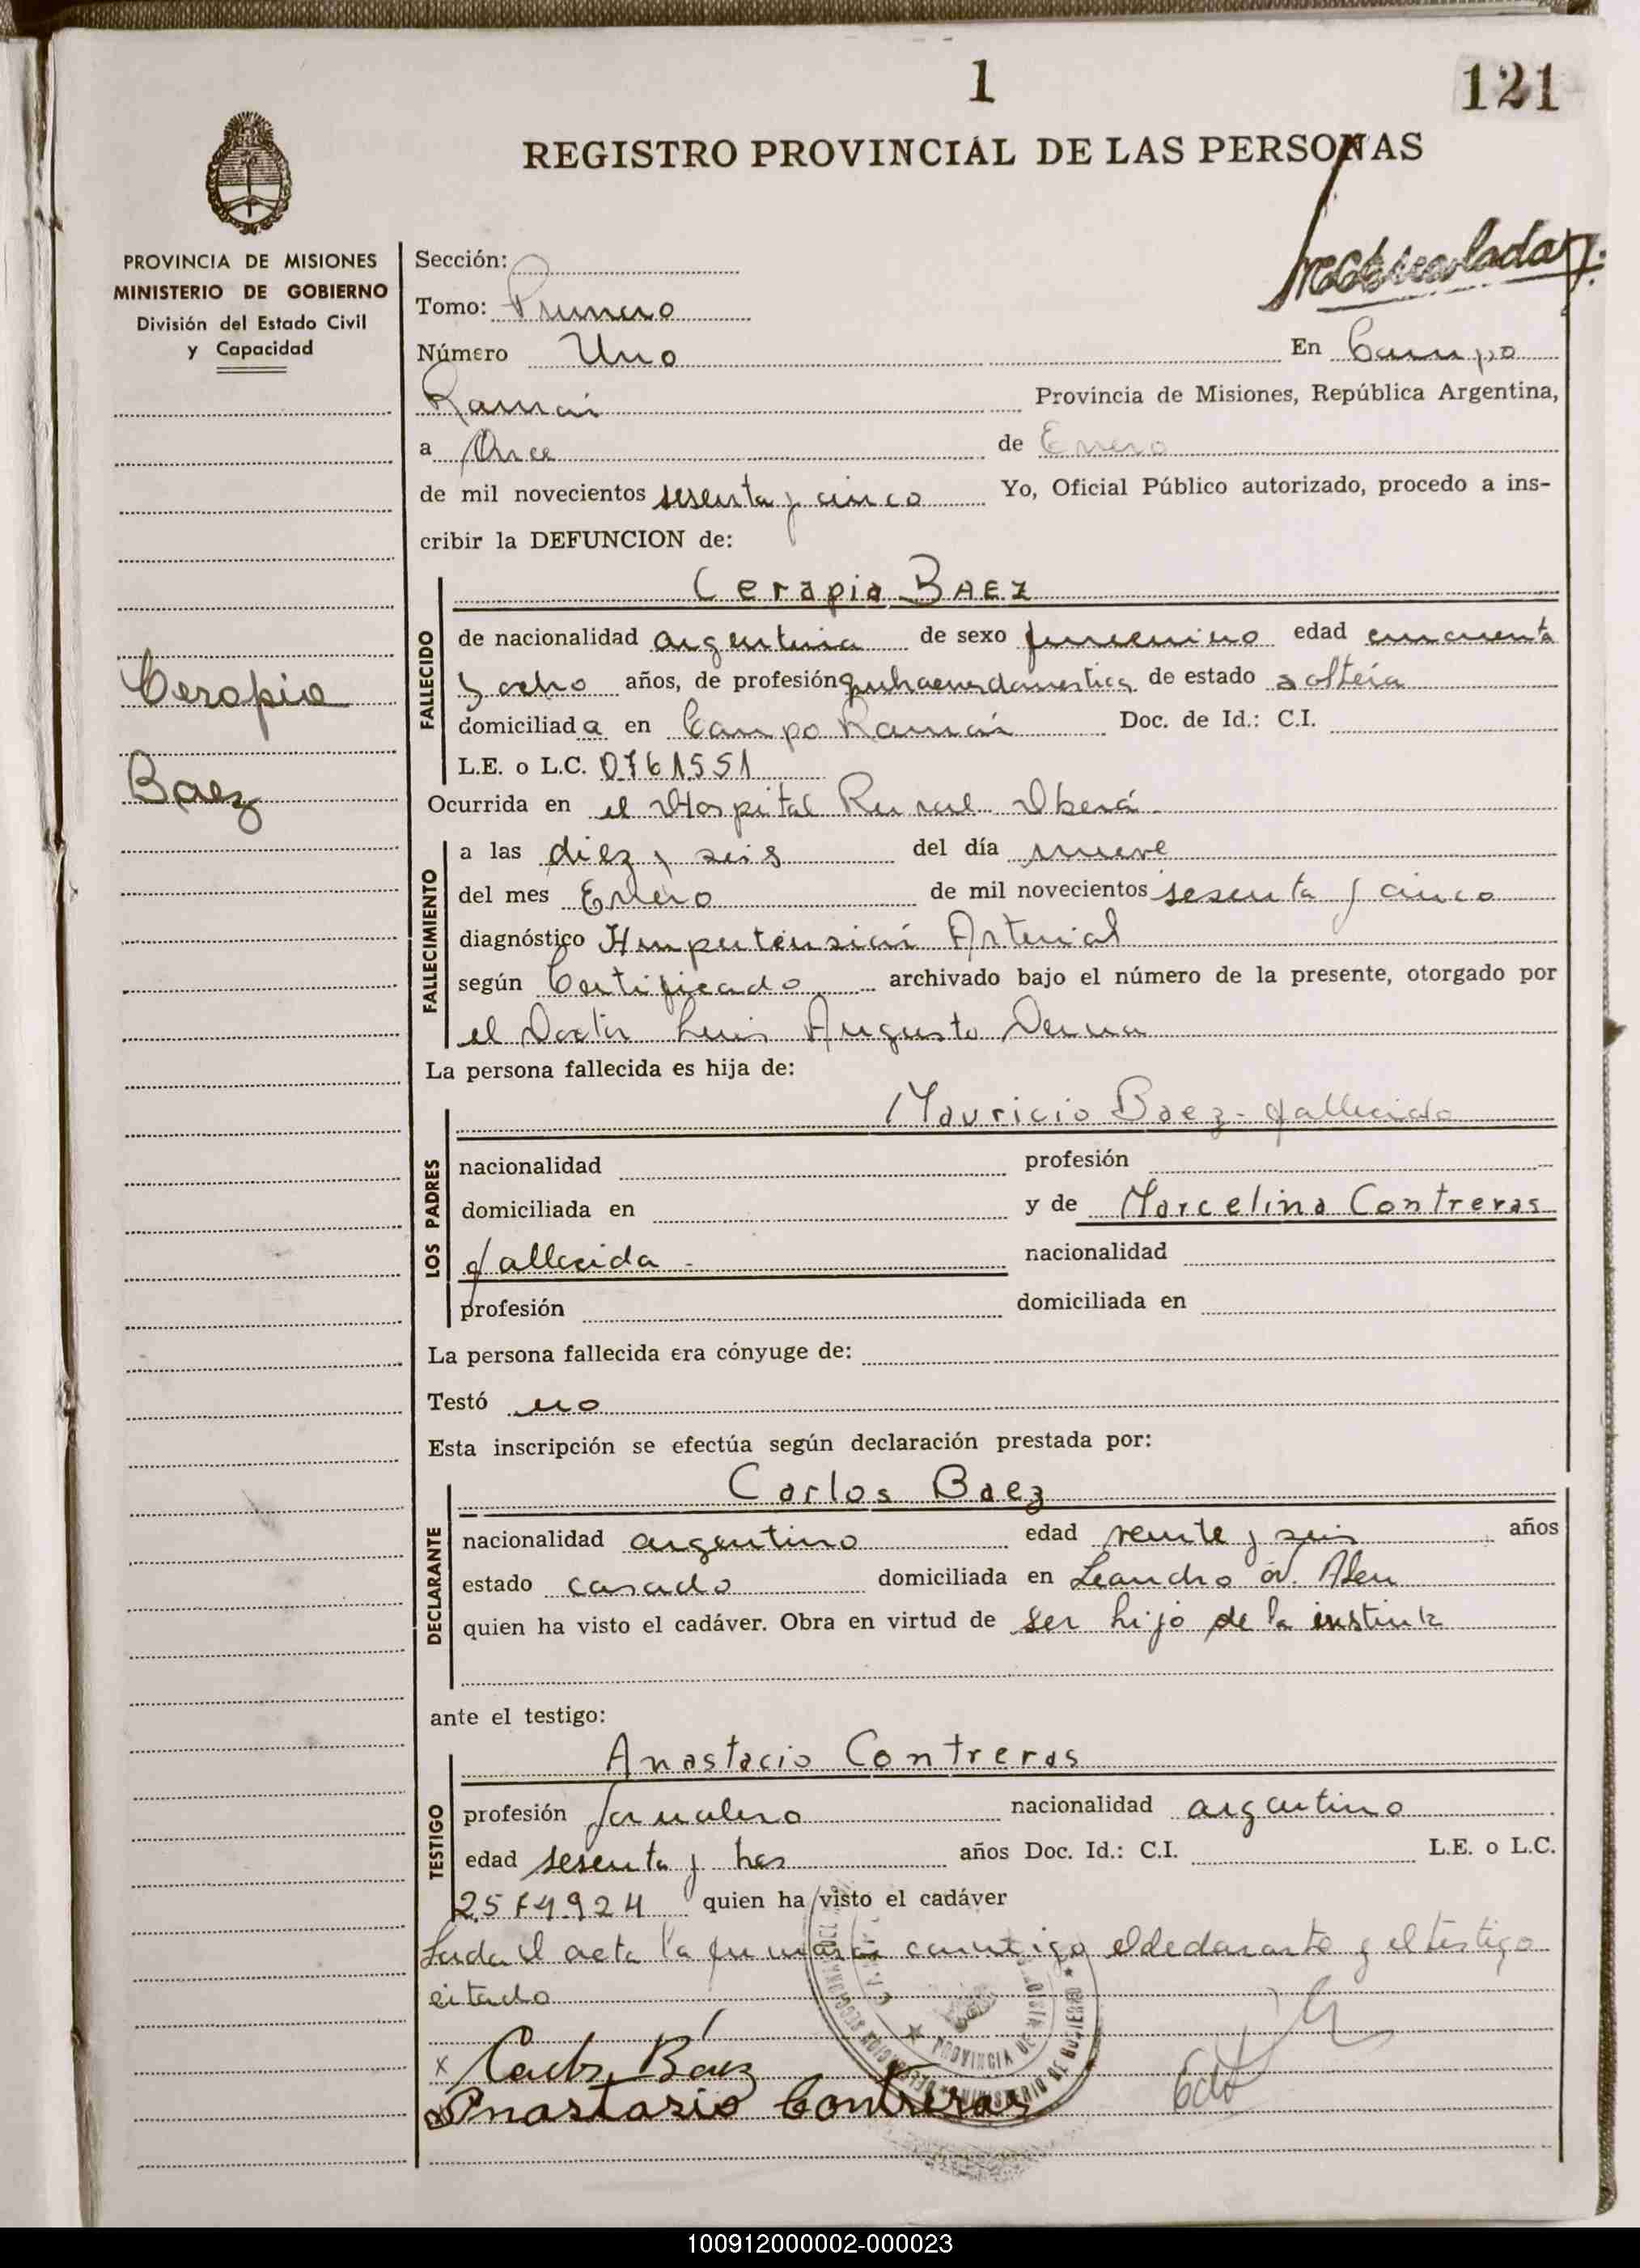 1
121
REGISTRO PROVINCIAL DE LAS PERSONAS
PROVINCIA DE MISIONES
MINISTERIO DE GOBIERNO
División del Estado Civil
y Capacidad
Cerapia
Baez
Sección:
Tomo: Primero
Número Uno En Campo
Ramón Provincia de Misiones, República Argentina,
a Once de Enero
de mil novecientos sesenta y cinco Yo, Oficial Público autorizado, procedo a ins-
cribir la DEFUNCION de:
Cerapia BAEZ
FALLECIDO
de nacionalidad argentina de sexo femenino edad cincuenta
y ocho años, de profesión quehaceres domestica de estado soltera
domiciliada en Campo Ramón Doc. de Id.: C.I.
L.E. o L.C. 0761551
Ocurrida en el Hospital Rural Oberá
FALLECIMIENTO
a las diez y seis del día nueve
del mes Enero de mil novecientos sesenta y cinco
diagnóstico Hinpertensión Arterial
según Certificado archivado bajo el número de la presente, otorgado por
el Doctor Luis Augusto
La persona fallecida es hija de:
Mauricio Baez - fallecido
LOS PADRES
nacionalidad profesión
domiciliada en y de Marcelina Contreras
fallecida - nacionalidad
profesión domiciliada en
La persona fallecida era cónyuge de:
Testó no
Esta inscripción se efectúa según declaración prestada por:
Carlos Baez
DECLARANTE
nacionalidad argentino edad veinte y seis años
estado casado domiciliada en Leandro N. Alem
quien ha visto el cadáver. Obra en virtud de ser hijo de la
ante el testigo:
Anastacio Contreras
TESTIGO
profesión Jornalero nacionalidad argentino
edad sesenta y tres años Doc. Id.: C.I. L.E. o L.C.
quien ha visto el cadáver
Leida el acta la firmaran conmigo el declarante y el testigo
citado
x Carlos Báez
Anastasio Contreras
PROVINCIA DE
MINISTERIO DE GOBIERNO
100912000002-000023